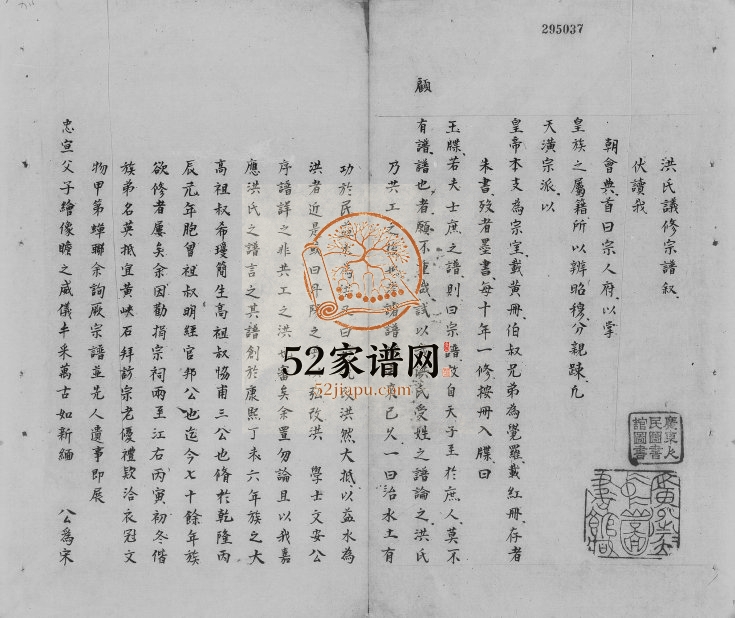 295037
洪氏議修宗譜叙
伏讀我
朝會典首曰宗人府以掌
皇族之屬籍所以辨昭穆分親疎凡
天潢宗派以
皇帝本支為宗室載黄冊伯叔兄弟為覺羅載紅冊存者
朱書歿者墨書每十年一修按冊入牒曰
玉牒若夫士庶之譜則曰宗譜故自天子至於庶人莫不
有譜譜也者顧不重哉試以洪氏受姓之譜論之洪氏
顧
乃共工之後世
久一曰治水土有
功於民
洪然大抵以益水為
洪者近是
改洪 學士文安公
序譜詳之非共工之洪
審矣余置勿論且以我嘉
應洪氏之譜言之其譜創於康熙丁未六年族之大
高祖叔希瓊簡生高祖叔恊甫三公也脩於乾隆丙
辰元年胞曾祖叔明經官邦公也迄今七十餘年族
欲修者屢矣余因勸捐宗祠兩至江右丙寅初冬偕
族弟名英抵宜黄峡石拜訪宗老優禮欵洽衣冠文
物甲第蟬聯余詢厥宗譜並先人遺事即展
忠宣父子繪像瞻之威儀丰采萬古如新緬 公為宋
廣東人民圖書館圖書
52家谱网
52jiapu.com